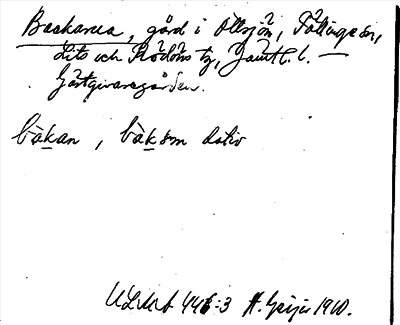 Backarna, gård i Ottsjön, Föllinge sn,
Lits och Rödöns tg, Jämtl. l. —
Gästgivaregården.
bàkan, bàksom dativ
ULMA 446:3 H. Geijer 1910.